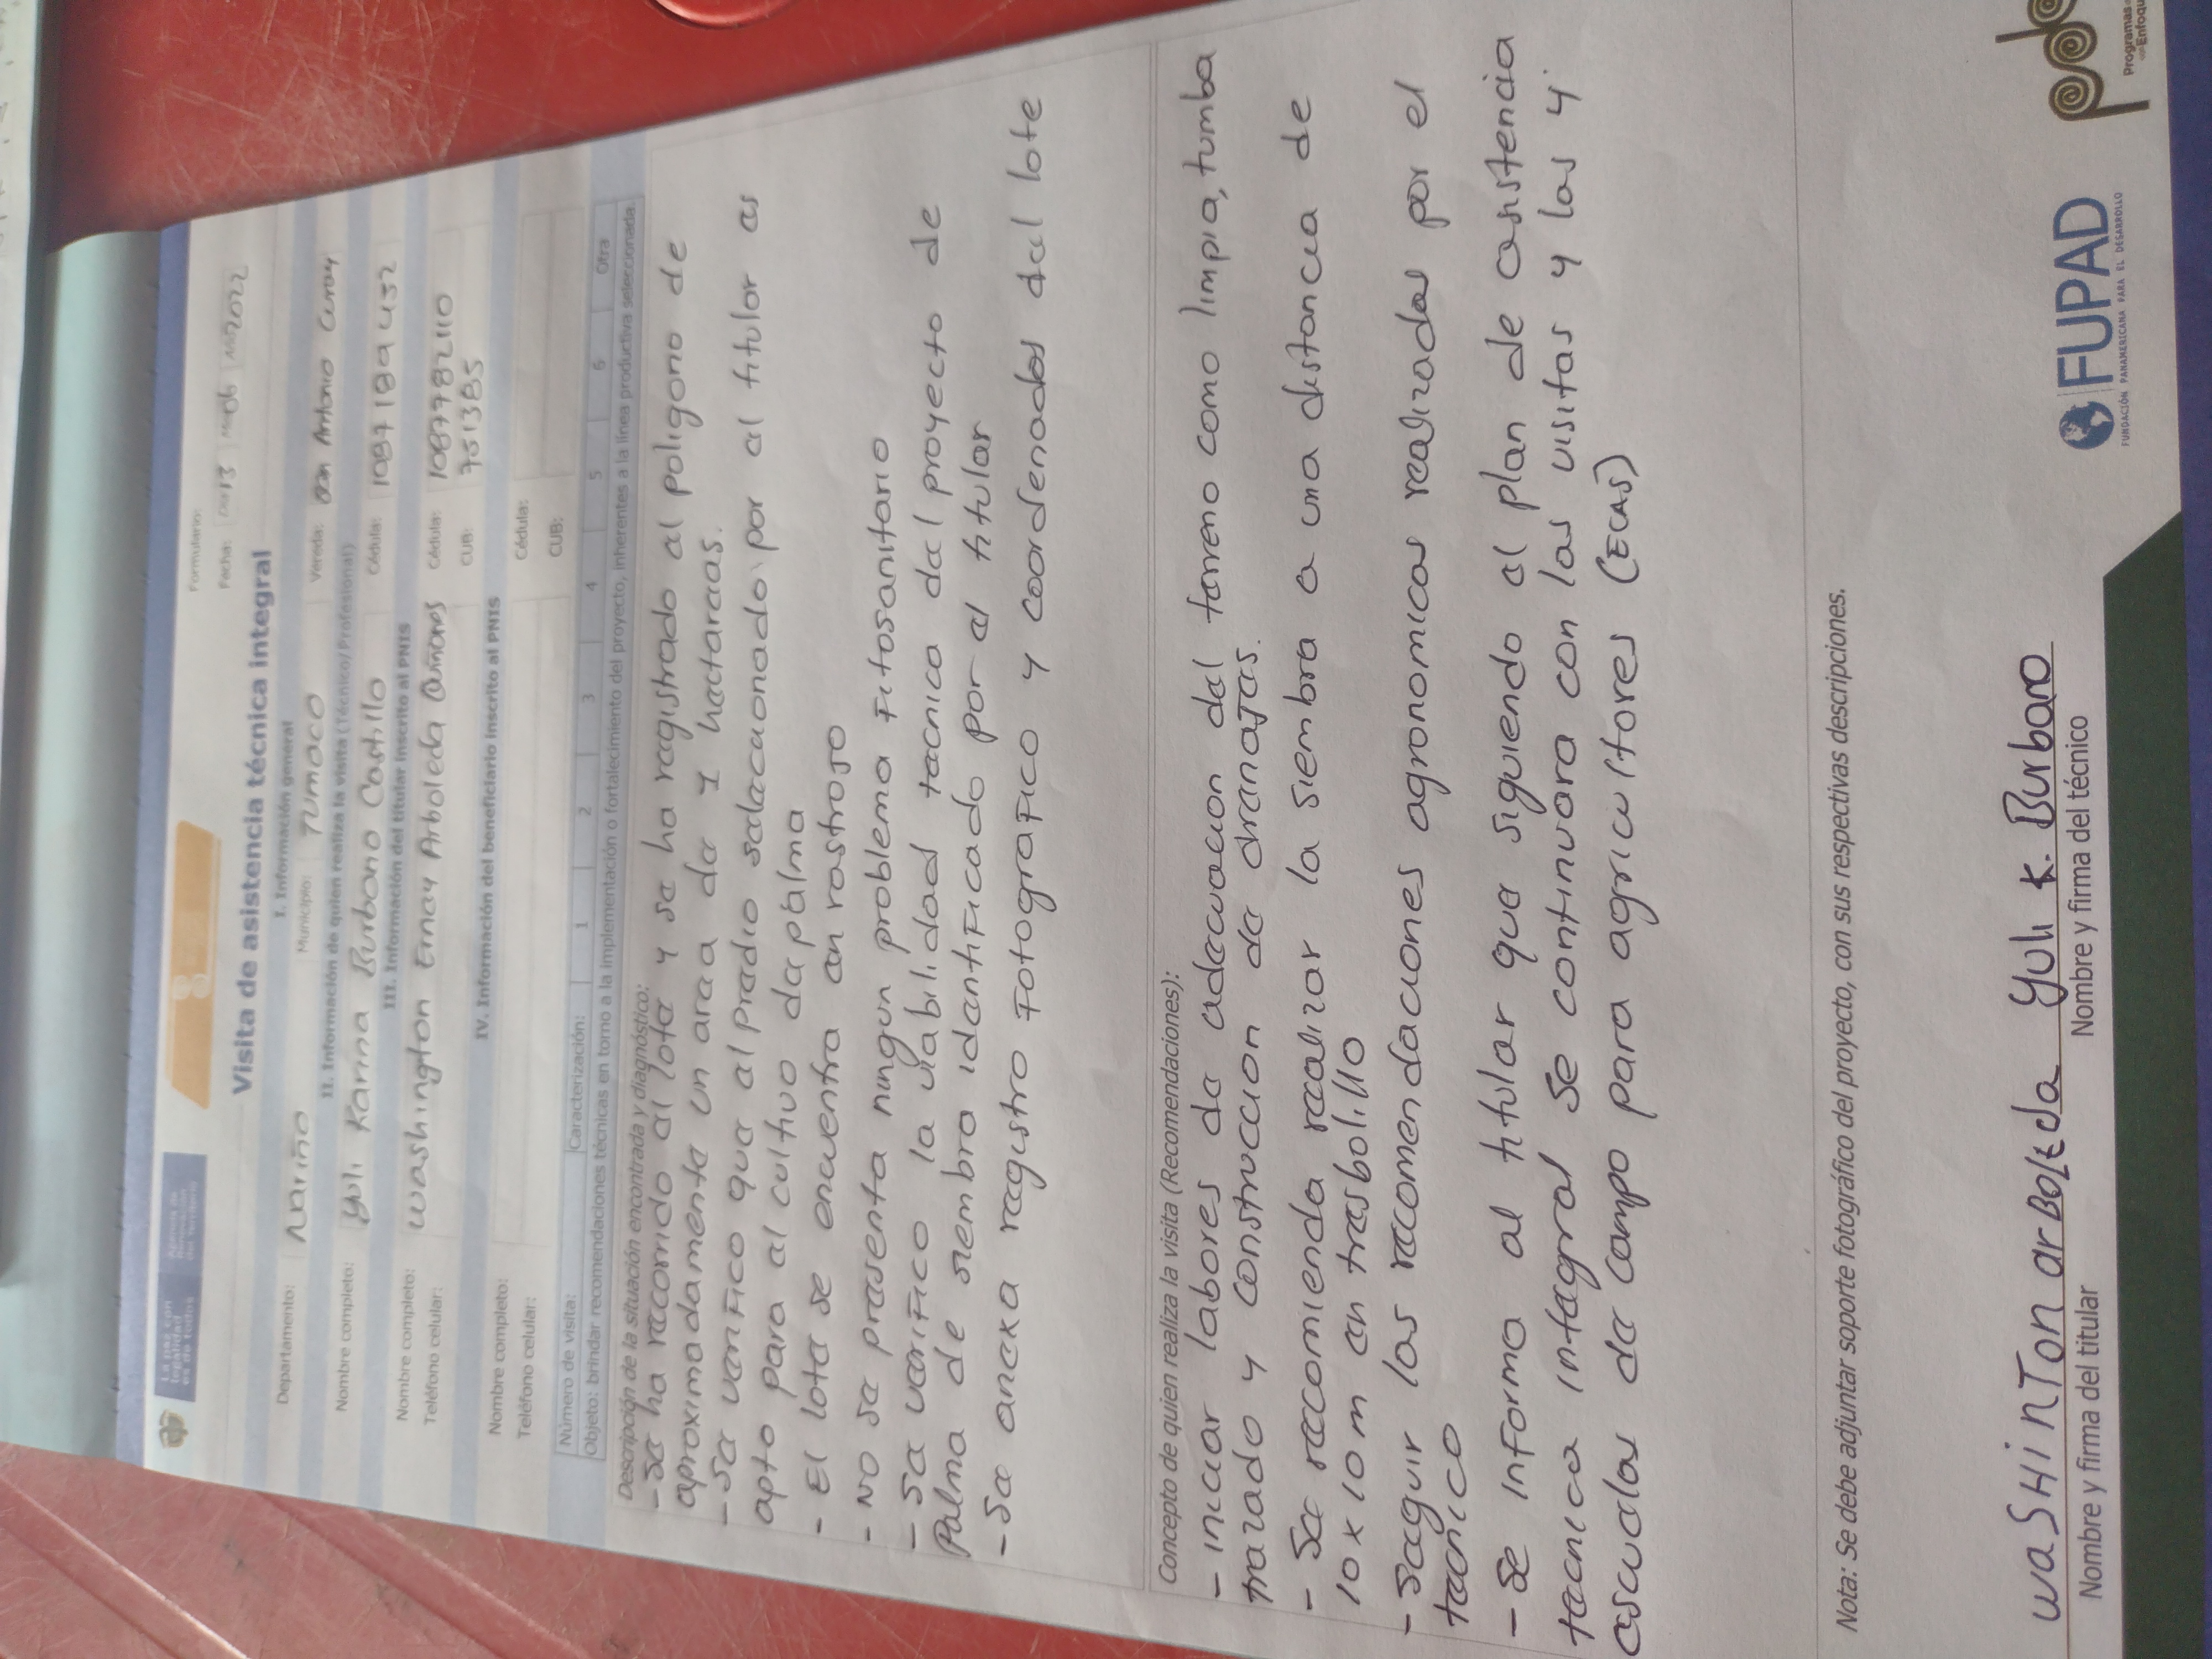 La paz con
legalidad
es de todos
Formulario:
Fecha: Día 13 Mes 06 Año 2022
Visita de asistencia técnica integral
I. Información general
Departamento: Nariño Municipio: Tumaco Vereda: San Antonio Curay
II. Información de quien realiza la visita (Técnico/Profesional)
Nombre completo: Yuli Karina Burbano Castillo Cédula: 1087189452
III. Información del titular inscrito al PNIS
Nombre completo: Washington Ernay Arboleda Cédula: 1087782110
Teléfono celular: CUB: 751385
IV. Información del beneficiario inscrito al PNIS
Nombre completo: Cédula:
Teléfono celular: CUB:
Número de visita: Caracterización: 1 2 3 4 5 6 Otra
Objeto: brindar recomendaciones técnicas en torno a la implementación o fortalecimiento del proyecto, inherentes a la línea productiva seleccionada.
Descripción de la situación encontrada y diagnóstico:
- Se ha recorrido el lote y se ha registrado el poligono de
aproximadamente un area de 1 hectareas.
- Se verifico que el predio seleccionado por el titular es
apto para el cultivo de palma
- El lote se encuentra en rastrojo
- No se presenta ningun problema fitosanitario
- Se verifico la viabilidad tecnica del proyecto de
Palma de siembra identificado por el titular
- Se anexa registro fotografico y coordenadas del lote
Concepto de quien realiza la visita (Recomendaciones):
- Iniciar labores de adecuacion del terreno como limpia, tumba
trazado y construccion de drenajes.
- Se recomienda realizar la siembra a una distancia de
10 x 10 m en tresbolillo
- Seguir las recomendaciones agronomicas realizadas por el
tecnico
- Se informa al titular que siguiendo el plan de asistencia
tecnica integral se continuara con las visitas y las 4
escuelas de campo para agricultores (ECAS)
Nota: Se debe adjuntar soporte fotográfico del proyecto, con sus respectivas descripciones.
waSHinTon arBolEda Yuli K. Burbano
Nombre y firma del titular Nombre y firma del técnico
FUPAD
FUNDACIÓN PANAMERICANA PARA EL DESARROLLO
Programas